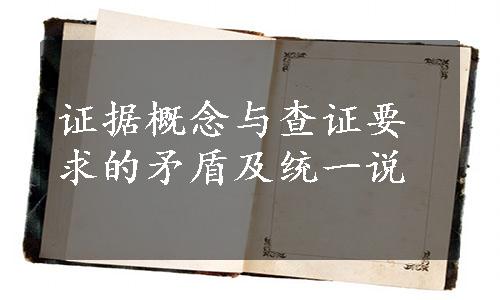 证据概念与查证要
求的矛盾及统一说